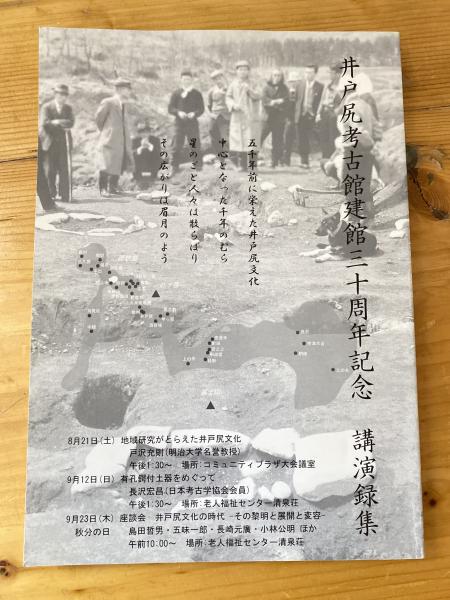 井戸尻考古館建館三十周年記念 講演録集
五千年前に栄えた井戸尻文化
中心となった千年のむら
星のごと人々は散らばり
その広がりは眉月のよう
8月21日(土) 地域研究がとらえた井戸尻文化
戸沢充則(明治大学名誉教授)
午後1:30～ 場所:コミュニティプラザ大会議室
9月12日(日) 有孔鍔付土器をめぐって
長沢宏昌(日本考古学協会会員)
午後1:30～ 場所:老人福祉センター清泉荘
9月23日(木) 座談会 井戸尻文化の時代 -その黎明と展開と変容-
秋分の日 鳥田哲男・五味一郎・長崎元廣・小林公明 ほか
午前10:00～ 場所:老人福祉センター清泉荘